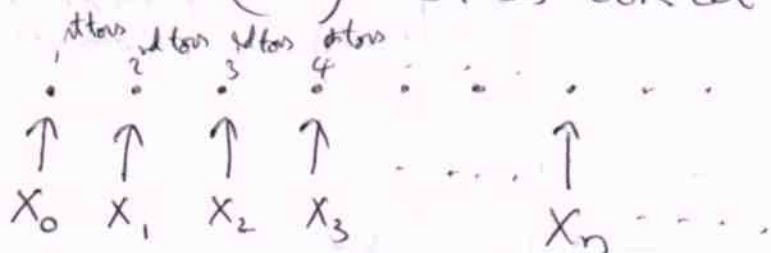 1st toss 2nd toss 3rd toss 4th toss
X₀ X₁ X₂ X₃ .... Xₙ ....